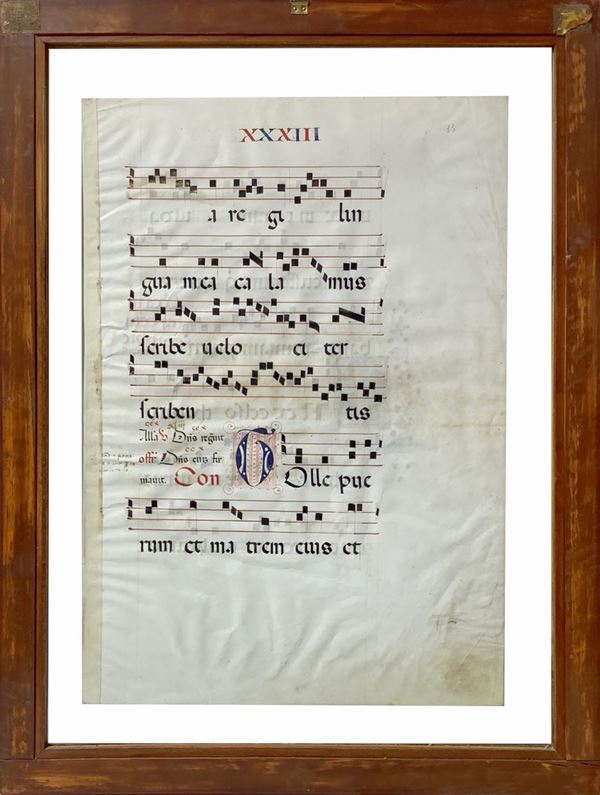 XXXIII
33
a re gi lin
gua mea ca la mus
scribe uelo ci ter
scriben tis
Alla Dns regnuit
offr Dns eniz fir
mauit. Con TOlle pue
rum et ma trem eius et